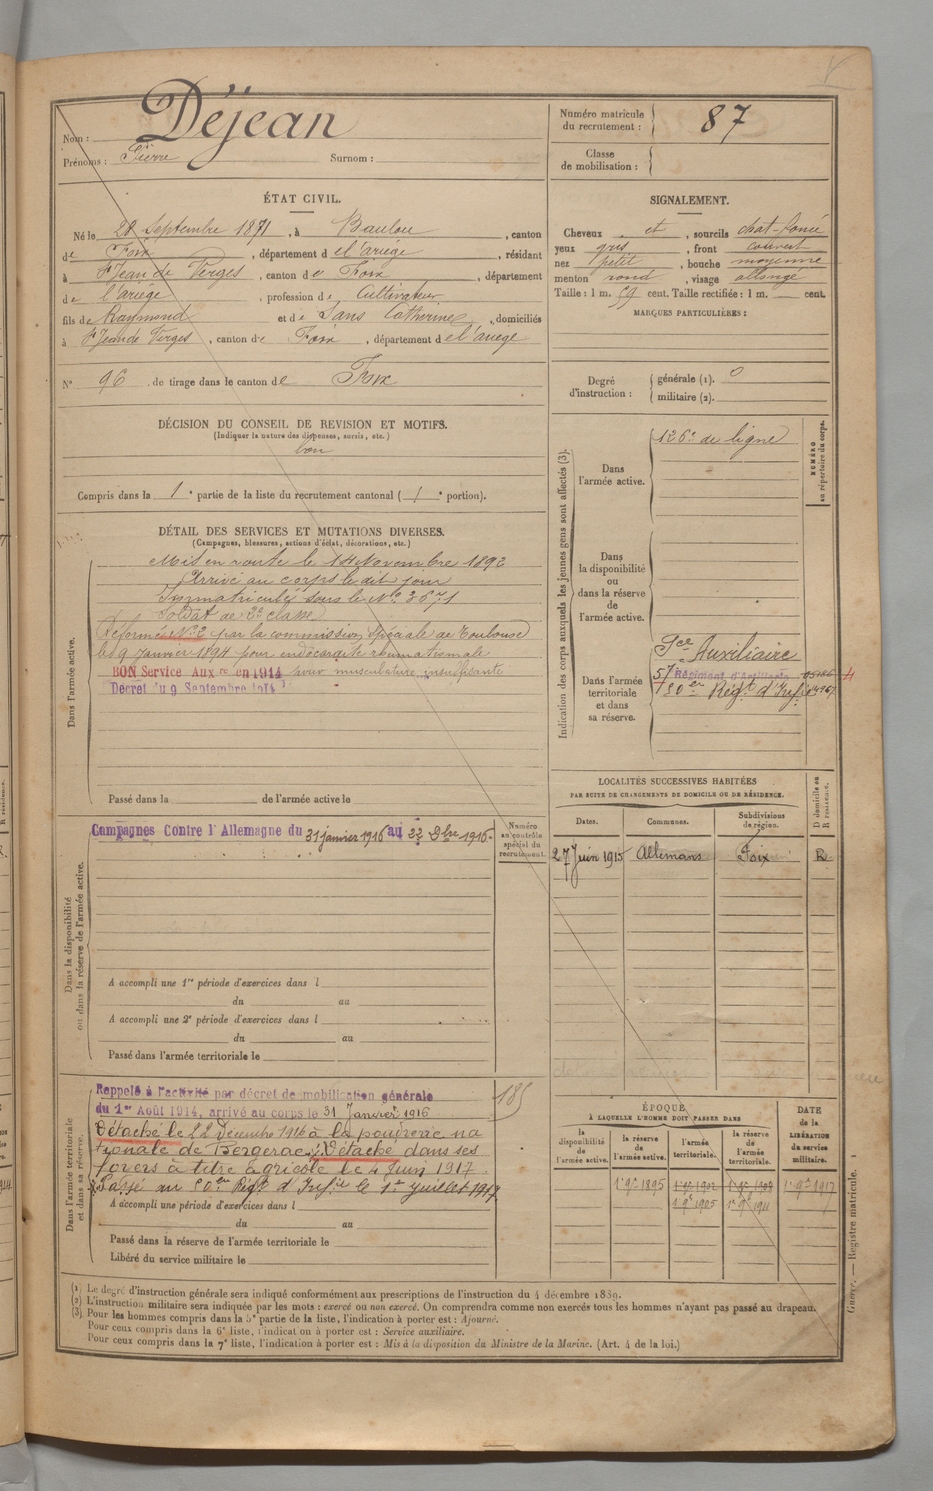 Nom : Déjean
Prénoms : Pierre Surnom :
Numéro matricule du recrutement : 87
Classe de mobilisation :
ÉTAT CIVIL.
Né le Septembre 1871, à Baulou, canton
de Foix, département de l'ariège, résidant
à St Jean de Verges, canton de Foix, département
de l'ariège, profession de Cultivateur
fils de Raymond et de Sans Catherine, domiciliés
à St Jean de Verges, canton de Foix, département de l'ariege
N° 96 de tirage dans le canton de Foix
DÉCISION DU CONSEIL DE REVISION ET MOTIFS.
(Indiquer la nature des dispenses, sursis, etc.)
bon
Compris dans la 1e partie de la liste du recrutement cantonal ( 1e portion).
SIGNALEMENT.
Cheveux et, sourcils chat-foncé
yeux gris, front couvert
nez petit, bouche moyenne
menton rond, visage allongé
Taille : 1 m. 59 cent. Taille rectifiée : 1 m. cent.
MARQUES PARTICULIÈRES :
Degré d'instruction : générale (1). 0
militaire (2).
DÉTAIL DES SERVICES ET MUTATIONS DIVERSES.
(Campagnes, blessures, actions d'éclat, décorations, etc.)
Dans l'armée active.
Mis en route le 14 Novembre 1892
Arrivé au corps le dit jour
Immatriculé sous le No 3671
Soldat de 2e classe
Réformé No 2 par la commission spéciale de Toulouse
le 9 Janvier 1894 pour endocardite rhumatismale
BON Service Auxre en 1914 pour musculature insuffisante
Décret du 9 Septembre 1914
Passé dans la de l'armée active le
Indication des corps auxquels les jeunes gens sont affectés (3).
NUMÉRO au répertoire du corps.
Dans l'armée active. 126e de ligne
Dans la disponibilité ou dans la réserve de l'armée active.
Dans l'armée territoriale et dans sa réserve.
Sce Auxiliaire
57 Régiment d'Artillerie
Régt d'Inf.
Dans la disponibilité ou dans la réserve de l'armée active.
Campagnes Contre l'Allemagne du 31 janvier 1916 au 22 Xbre 1916.
Numéro au contrôle spécial du recrutement.
A accompli une 1re période d'exercices dans l
du au
A accompli une 2e période d'exercices dans l
du au
Passé dans l'armée territoriale le
LOCALITÉS SUCCESSIVES HABITÉES
PAR SUITE DE CHANGEMENTS DE DOMICILE OU DE RÉSIDENCE.
Dates. Communes. Subdivisions de région. D domicile ou R résidence.
27 Juin 1915 Allemans Foix R
Dans l'armée territoriale et dans sa réserve.
Rappelé à l'activité par décret de mobilisation générale
du 1er Août 1914, arrivé au corps le 31 Janvier 1916
185
Détaché le 22 Décembre 1916 à la poudrerie na
tionale de Bergerac. Détaché dans ses
foyers à titre agricole le 4 Juin 1917.
Passé au Régt d'Infie le 1er Juillet 1917
A accompli une période d'exercices dans l
du au
Passé dans la réserve de l'armée territoriale le
Libéré du service militaire le
ÉPOQUE
À LAQUELLE L'HOMME DOIT PASSER DANS
la disponibilité de l'armée active. la réserve de l'armée active. l'armée territoriale. la réserve de l'armée territoriale.
DATE de la LIBÉRATION du service militaire.
1er 9bre 1895 1er 9bre 1902 1er 9bre 1908 1er 9bre 1917
1er 9e 1905 1er 9e 1911
Registre matricule.
(1) Le degré d'instruction générale sera indiqué conformément aux prescriptions de l'instruction du 4 décembre 1889.
(2) L'instruction militaire sera indiquée par les mots : exercé ou non exercé. On comprendra comme non exercés tous les hommes n'ayant pas passé au drapeau.
(3) Pour les hommes compris dans la 5e partie de la liste, l'indication à porter est : Ajourné.
Pour ceux compris dans la 6e liste, l'indication à porter est : Service auxiliaire.
Pour ceux compris dans la 7e liste, l'indication à porter est : Mis à la disposition du Ministre de la Marine. (Art. 4 de la loi.)